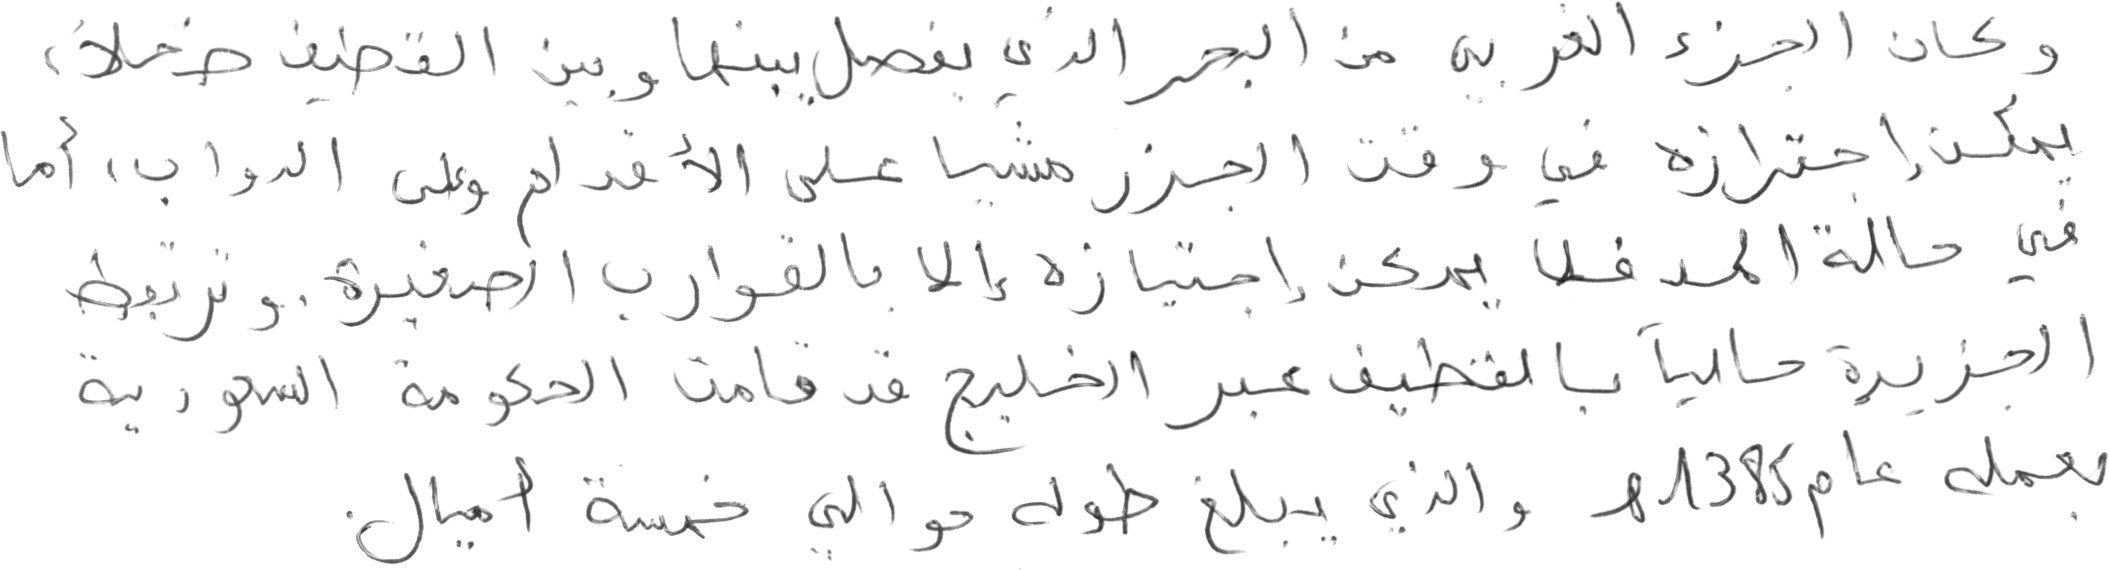 وكان الجزء الغربي من البحر الذي يفصل بينها وبين القطيف ضحلاً،
يمكن إجتيازه في وقت الجزر مشيا على الأقدام وعلى الدواب، أما
في حالة المد فلا يمكن إجتيازه إلا بالقوارب الصغيرة. وترتبط
الجزيرة حالياً بالقطيف عبر الخليج قد قامت الحكومة السعودية
بعمله عام 1385هـ والذي يبلغ طوله حوالي خمسة أميال.